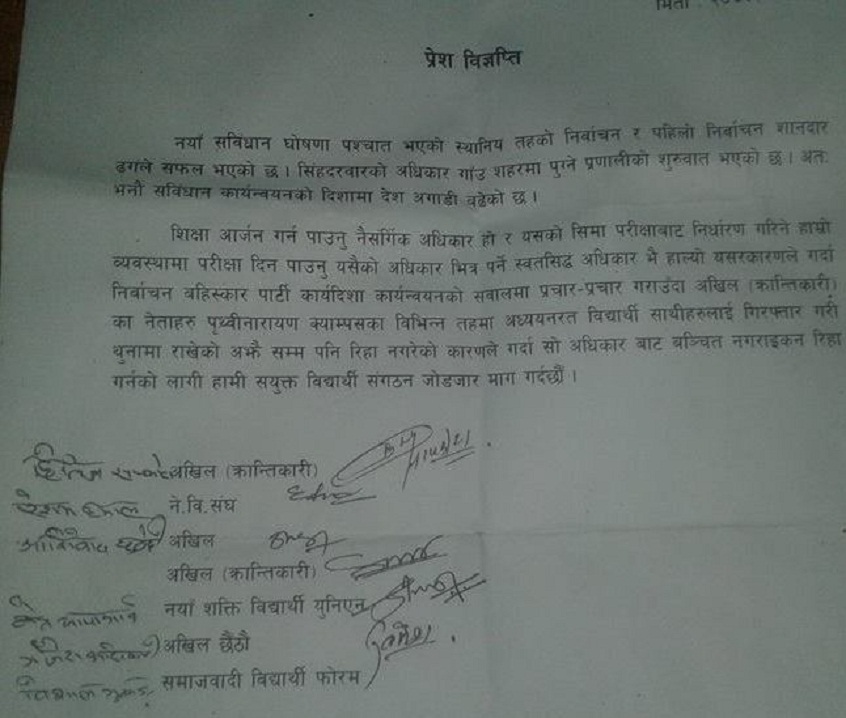 मिती :
प्रेश विज्ञप्ति
नयाँ सविधान घोषणा पश्चात भएको स्थानिय तहको निर्वाचन र पहिलो निर्वाचन शानदार
ढगले सफल भएको छ । सिंहदरवारको अधिकार गाँउ शहरमा पुग्ने प्रणालीको शुरुवात भएको छ । अतः
भनौ सविधान कार्यन्वयनको दिशामा देश अगाडी बढेको छ ।
शिक्षा आर्जन गर्न पाउनु नैसर्गिक अधिकार हो र यसको सिमा परीक्षाबाट निर्धारण गरिने हाम्रो
व्यवस्थामा परीक्षा दिन पाउनु यसैको अधिकार भित्र पर्ने स्वतसिद्ध अधिकार भै हाल्यो यसरकारणले गर्दा
निर्वाचन वहिस्कार पार्टी कार्यदिशा कार्यन्वयनको सवालमा प्रचार-प्रचार गराउंदा अखिल (क्रान्तिकारी)
का नेताहरु पृथ्वीनारायण क्याम्पसका विभिन्न तहमा अध्ययनरत विद्यार्थी साथीहरुलाई गिरफ्तार गरी
थुनामा राखेको अझै सम्म पनि रिहा नगरेको कारणले गर्दा सो अधिकार बाट बञ्चित नगराइकन रिहा
गर्नको लागी हामी सयुक्त विद्यार्थी संगठन जोडजार माग गर्दछौं ।
अखिल (क्रान्तिकारी)
ने.वि.संघ
अखिल
अखिल (क्रान्तिकारी)
नयाँ शक्ति विद्यार्थी युनिएन
अखिल छैठौ
समाजवादी विद्यार्थी फोरम